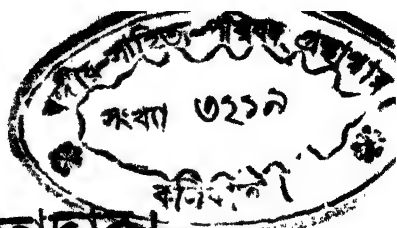 বঙ্গীয়-সাহিত্য-পরিষৎ গ্রন্থাগার
সংখ্যা ৩২১৯
কলিকাতা